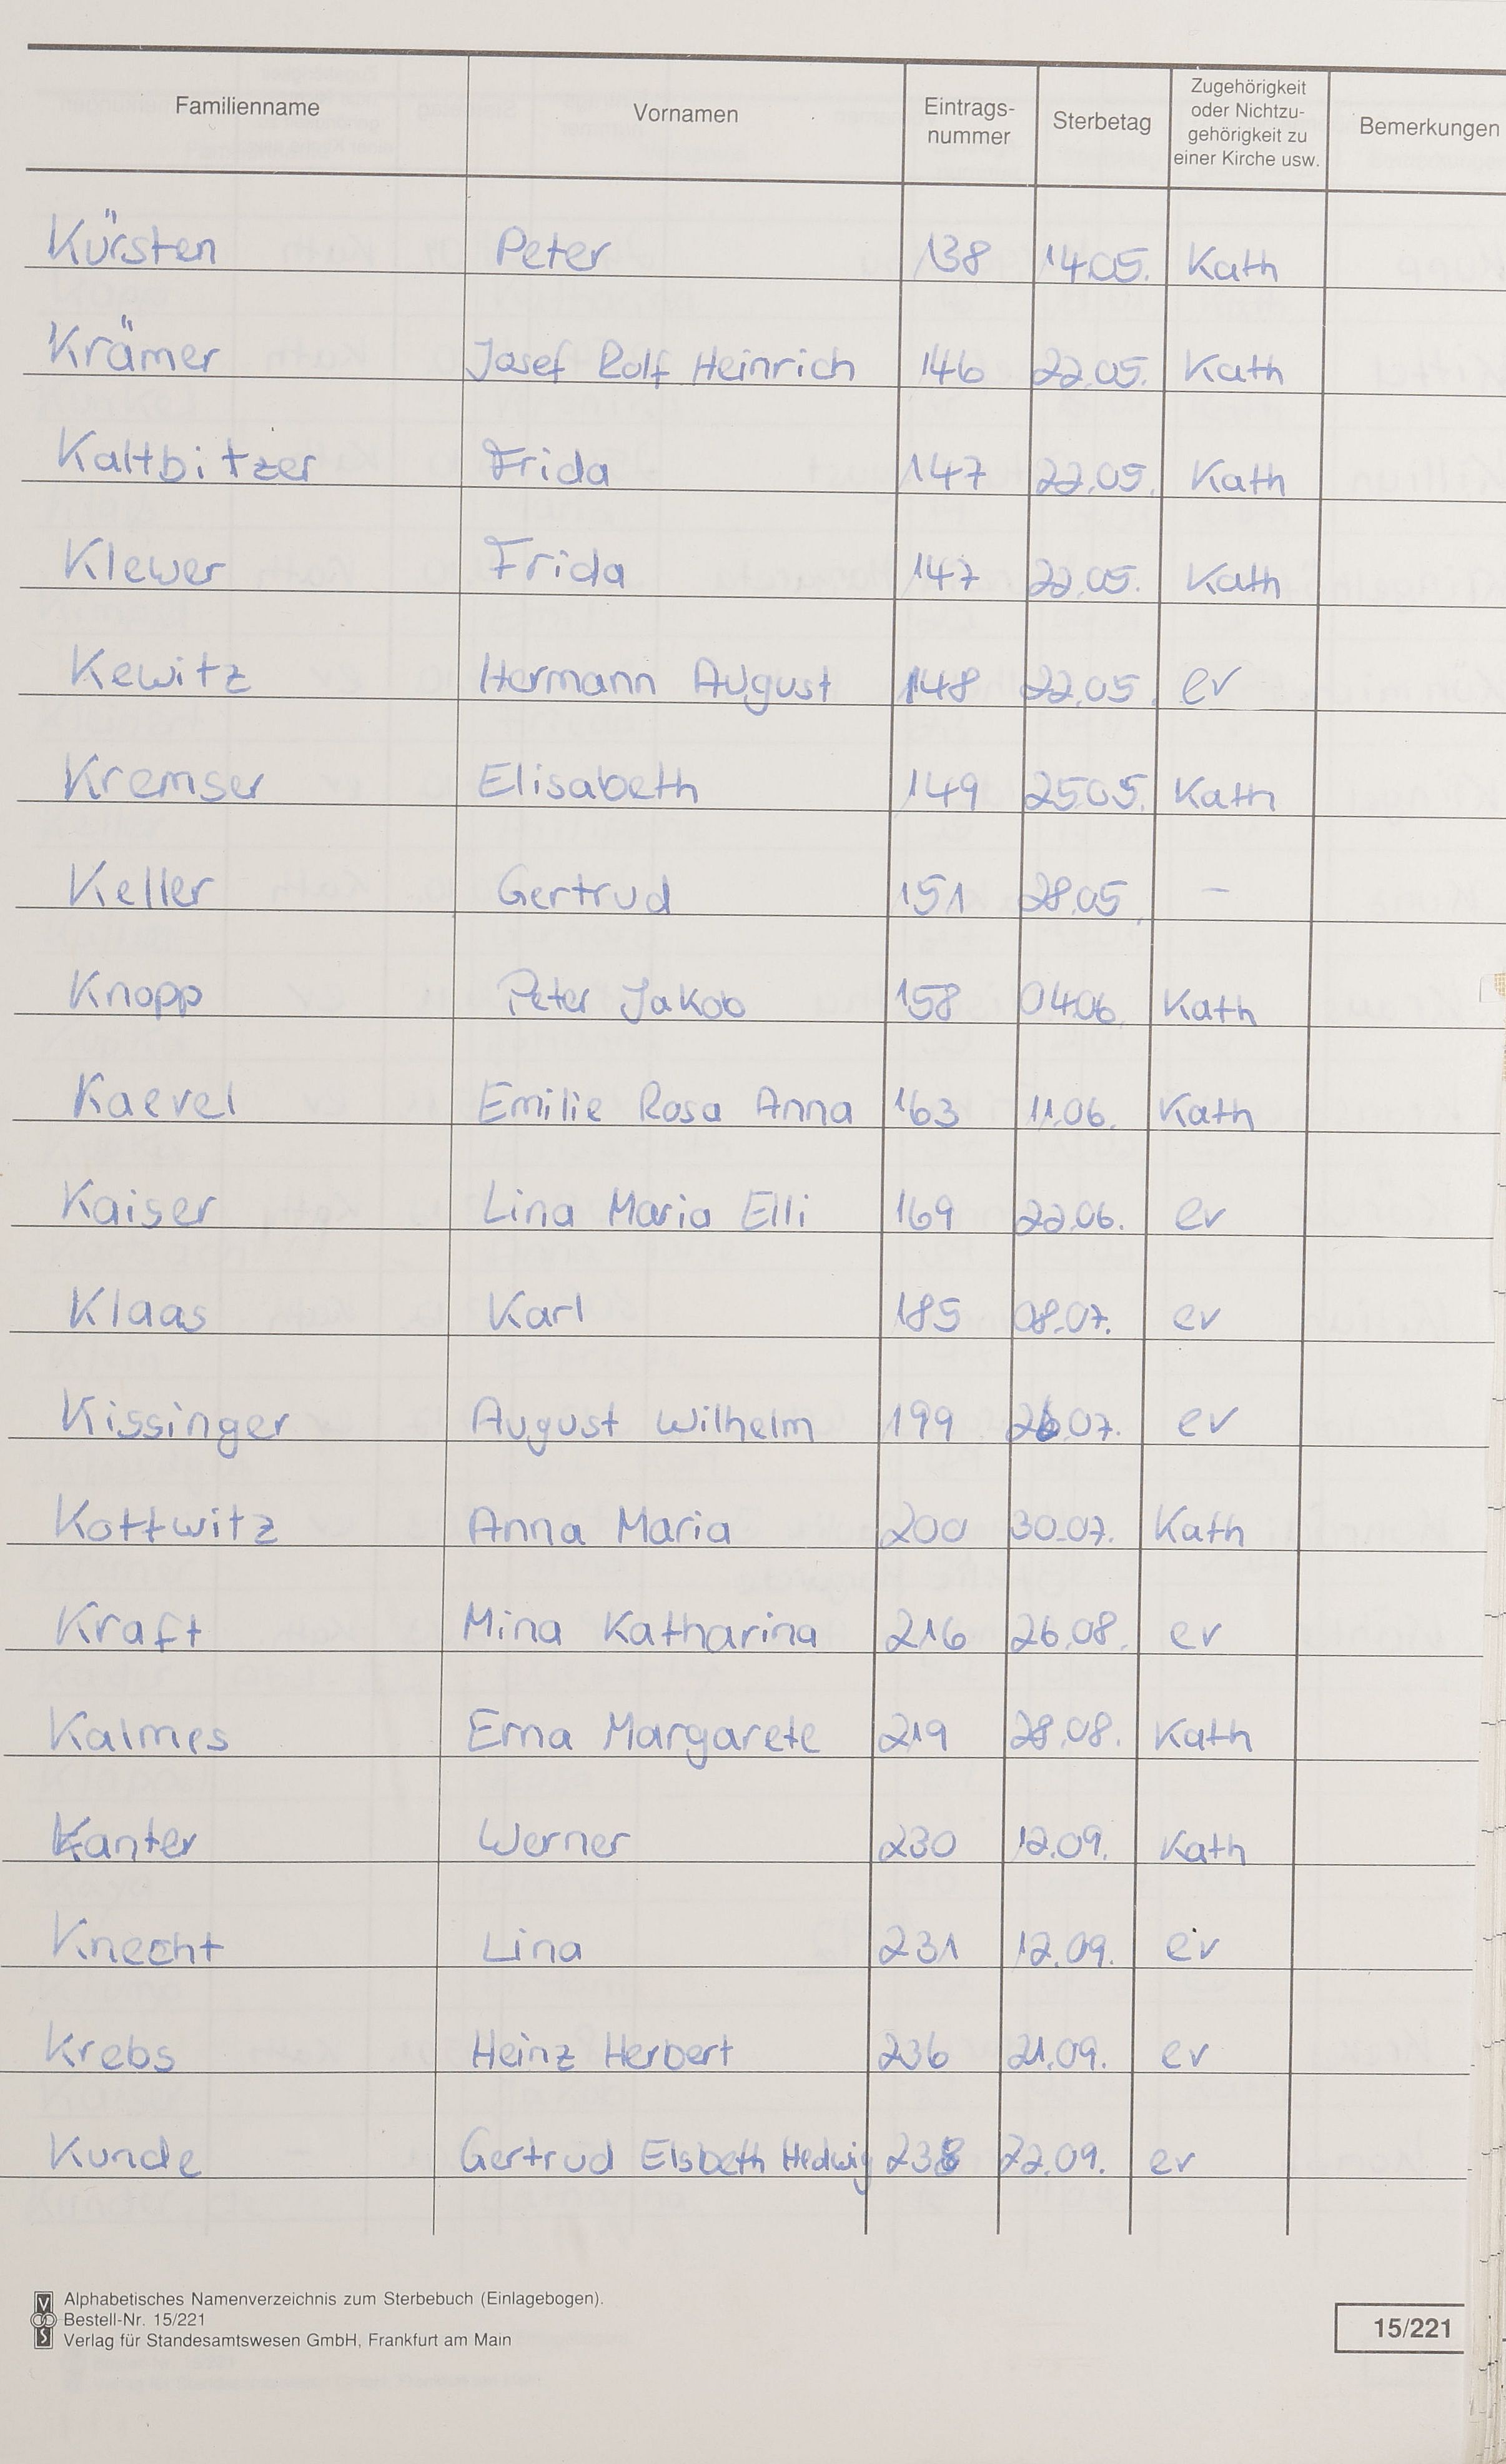 Familienname Vornamen Eintrags-nummer Sterbetag Zugehörigkeit oder Nichtzu-gehörigkeit zu einer Kirche usw. Bemerkungen
Kürsten Peter 138 14.05. Kath
Krämer Josef Rolf Heinrich 146 22.05. Kath
Kaltbitzer Frida 147 22.05. Kath
Klewer Frida 147 22.05. Kath
Kewitz Hermann August 148 22.05. ev
Kremser Elisabeth 149 25.05. Kath
Keller Gertrud 151 28.05. –
Knopp Peter Jakob 158 04.06. Kath
Kaevel Emilie Rosa Anna 163 11.06. Kath
Kaiser Lina Maria Elli 169 22.06. ev
Klaas Karl 185 08.07. ev
Kissinger August Wilhelm 199 26.07. ev
Kottwitz Anna Maria 200 30.07. Kath
Kraft Mina Katharina 216 26.08. ev
Kalmes Erna Margarete 219 28.08. Kath
Kanter Werner 230 12.09. Kath
Knecht Lina 231 12.09. ev
Krebs Heinz Herbert 236 21.09. ev
Kunde Gertrud Elsbeth Hedwig 238 22.09. ev
Alphabetisches Namenverzeichnis zum Sterbebuch (Einlagebogen).
Bestell-Nr. 15/221
Verlag für Standesamtswesen GmbH, Frankfurt am Main
15/221